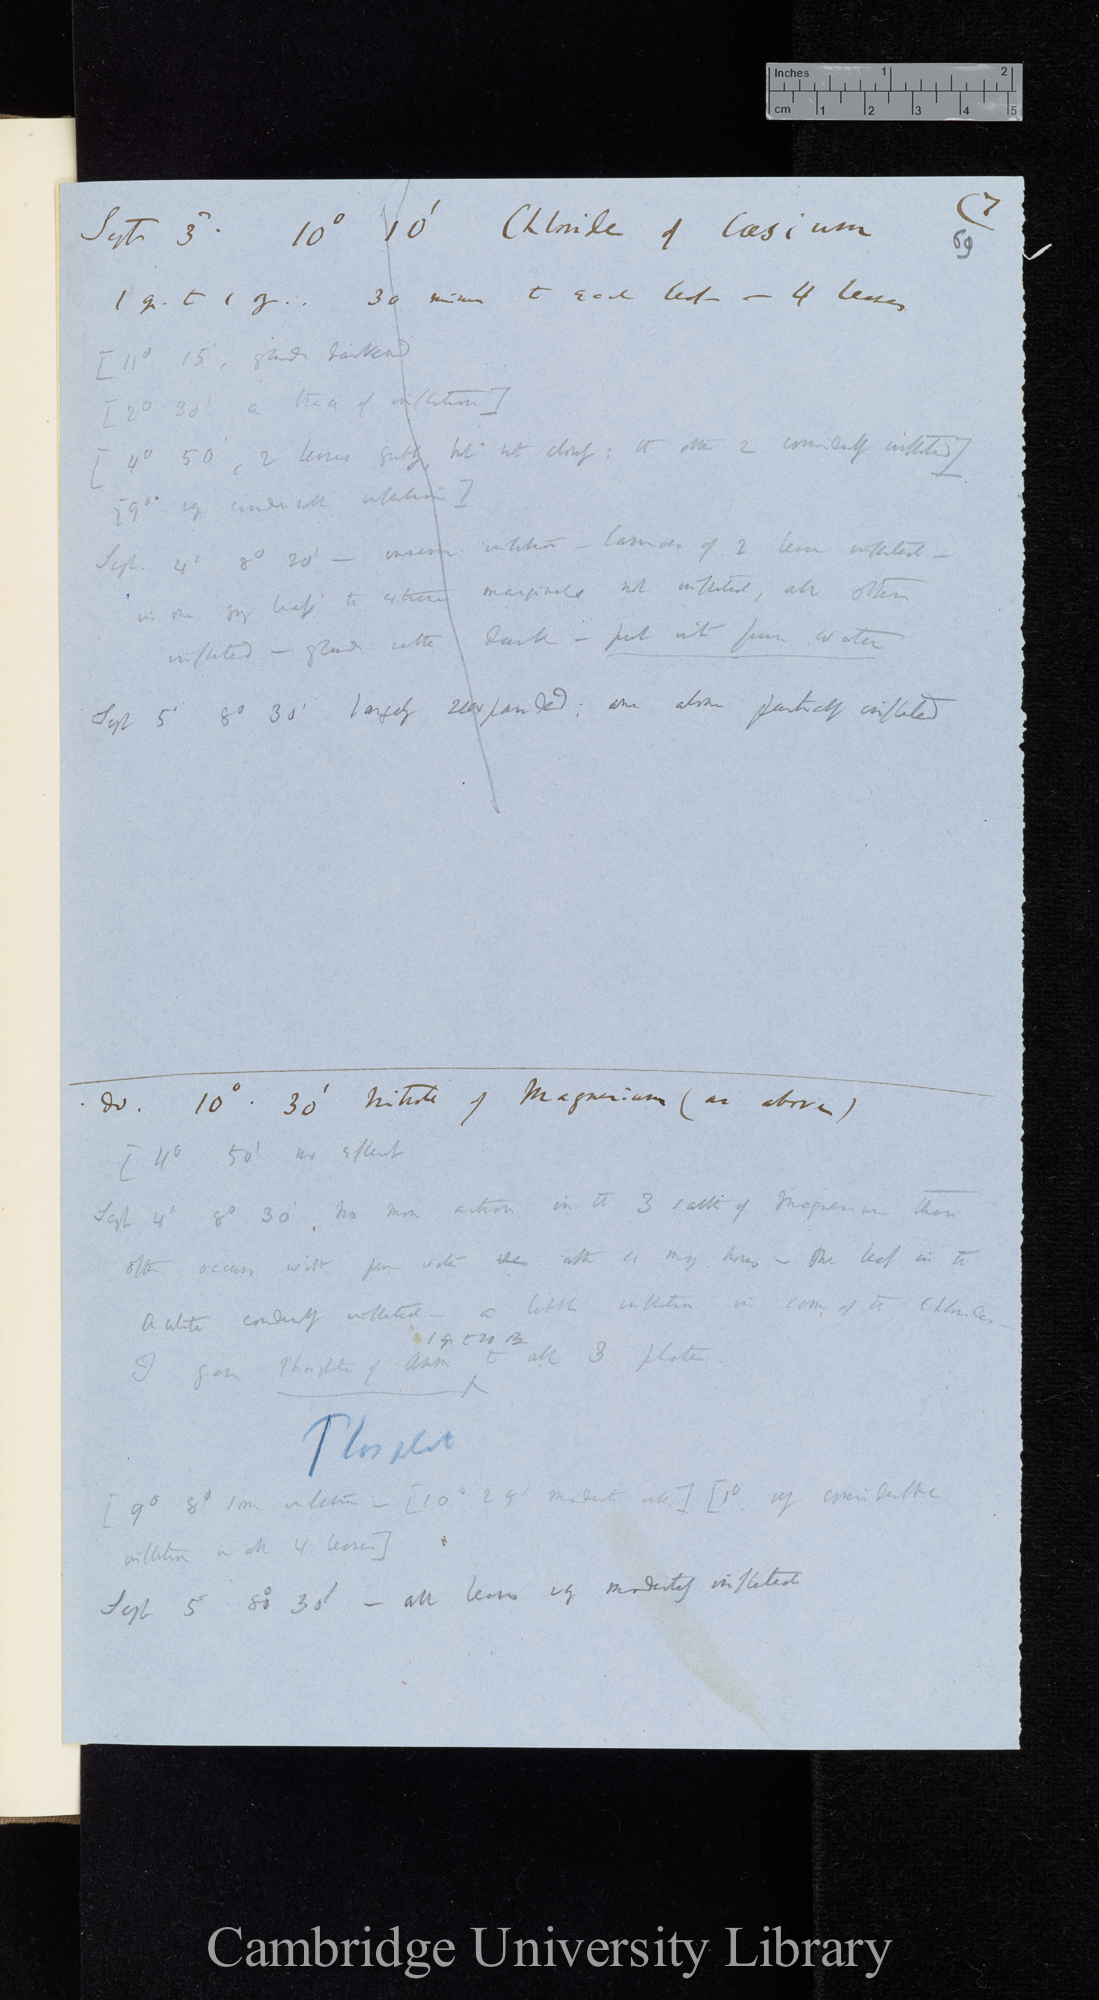 Inches 1 2
cm 1 2 3 4 5
(7
69
Sept 3. 10° 10' Chloride of Cæsium
1 gr. to 1 oz.. 30 minims to each leaf — 4 leaves
[11° 15', glands darkened
[2° 30' a trace of inflection]
[4° 50', 2 leaves greatly, but not closely: the other 2 considerably inflected]
[9° very considerable inflection]
Sept. 4' 8° 20' — inflection — laminæ of 2 leaves inflected —
in one leaf the extreme marginals not inflected, all others
inflected — glands rather dark — put into pure water
Sept 5' 8° 30' largely reexpanded: one alone partially inflected
do. 10°. 30' Nitrate of Magnesium (as above)
[11° 50' no effect
Sept 4' 8° 30' no more action in the 3 salts of Magnesium than
often occurs with pure water after so many hours — One leaf in the
Acetate considerably inflected — a little inflection in some of the Chlorides —
1 gr to 20 oz
I gave Phosphate of Amm to all 3 plates.
Phosphat
[9° 8' some inflection — [10° 25' moderate infl] [1° very considerable
inflection in all 4 leaves]
Sept 5 8° 30' — all leaves very moderately inflected
Cambridge University Library